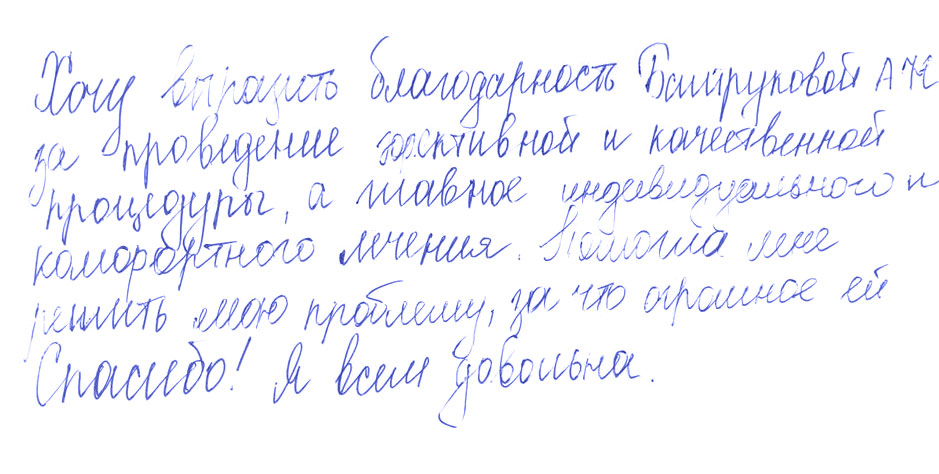 Хочу выразить благодарность Байтруковой А
за проведение эффективной и качественной
процедуры, а главное индивидуального и
комфортного лечения. Помогла мне
решить мою проблему, за что огромное ей
Спасибо! Я всем довольна.